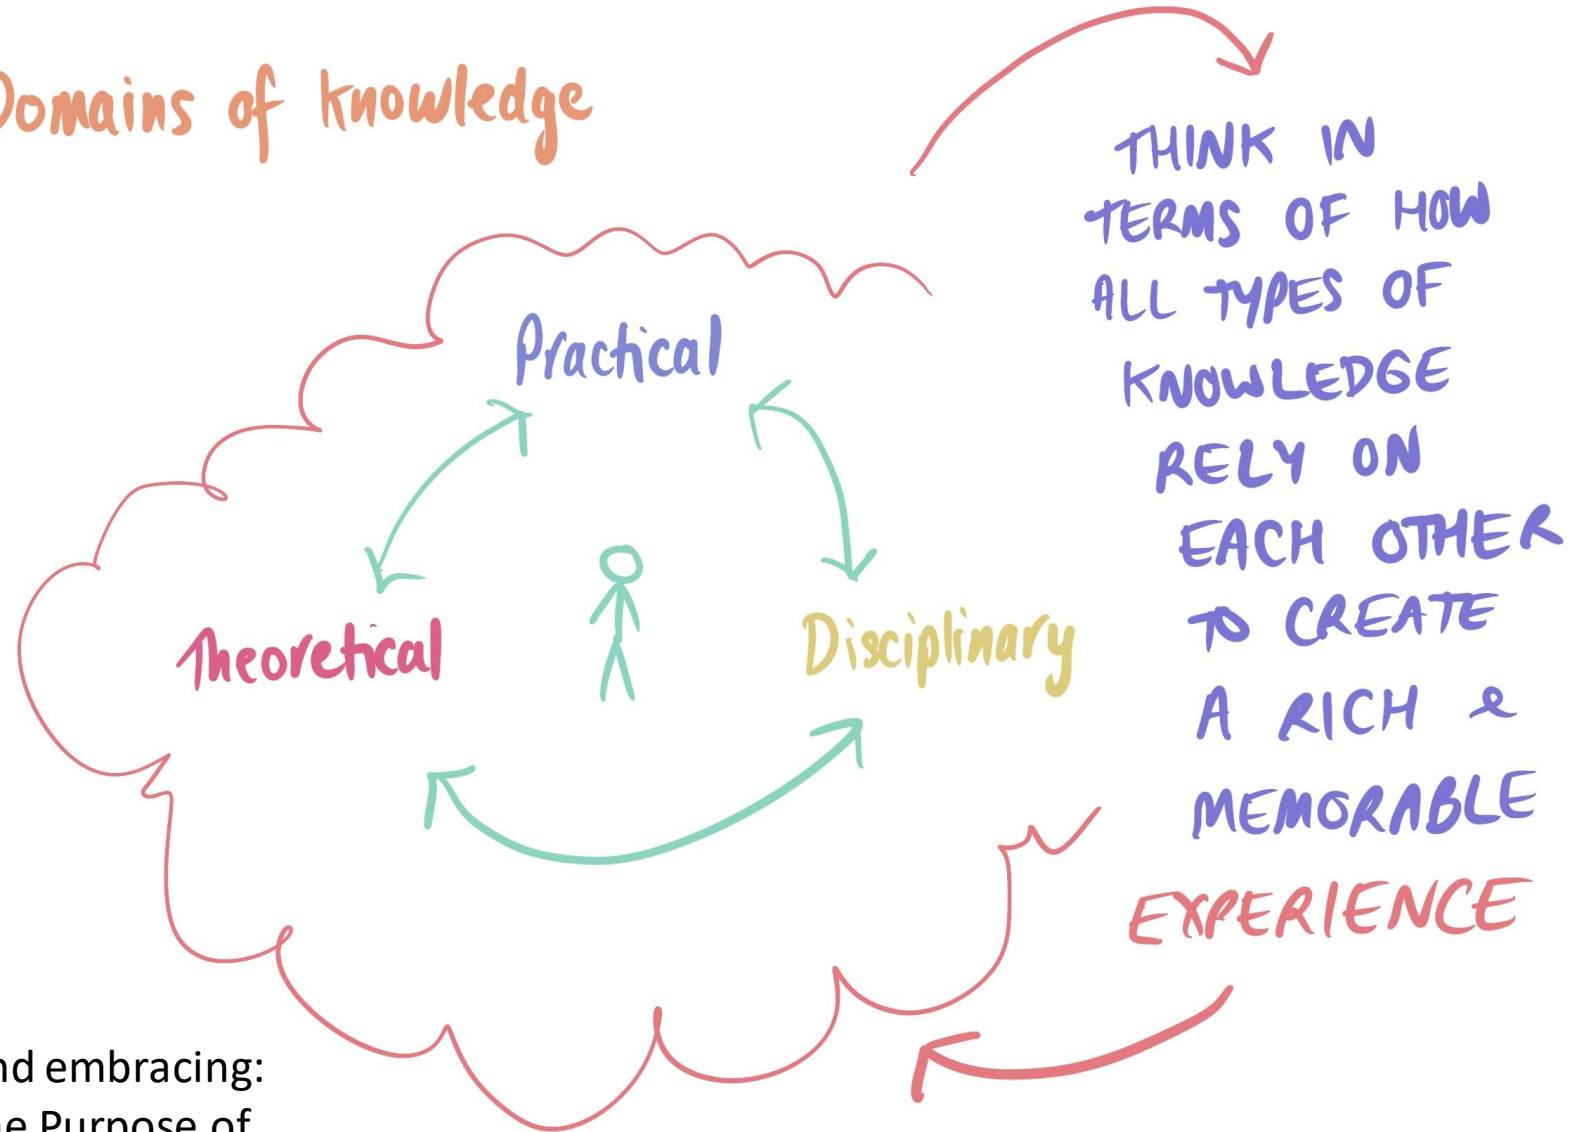 Domains of knowledge
Practical
Theoretical
Disciplinary
THINK IN
TERMS OF HOW
ALL TYPES OF
KNOWLEDGE
RELY ON
EACH OTHER
TO CREATE
A RICH &
MEMORABLE
EXPERIENCE
nd embracing:
e Purpose of